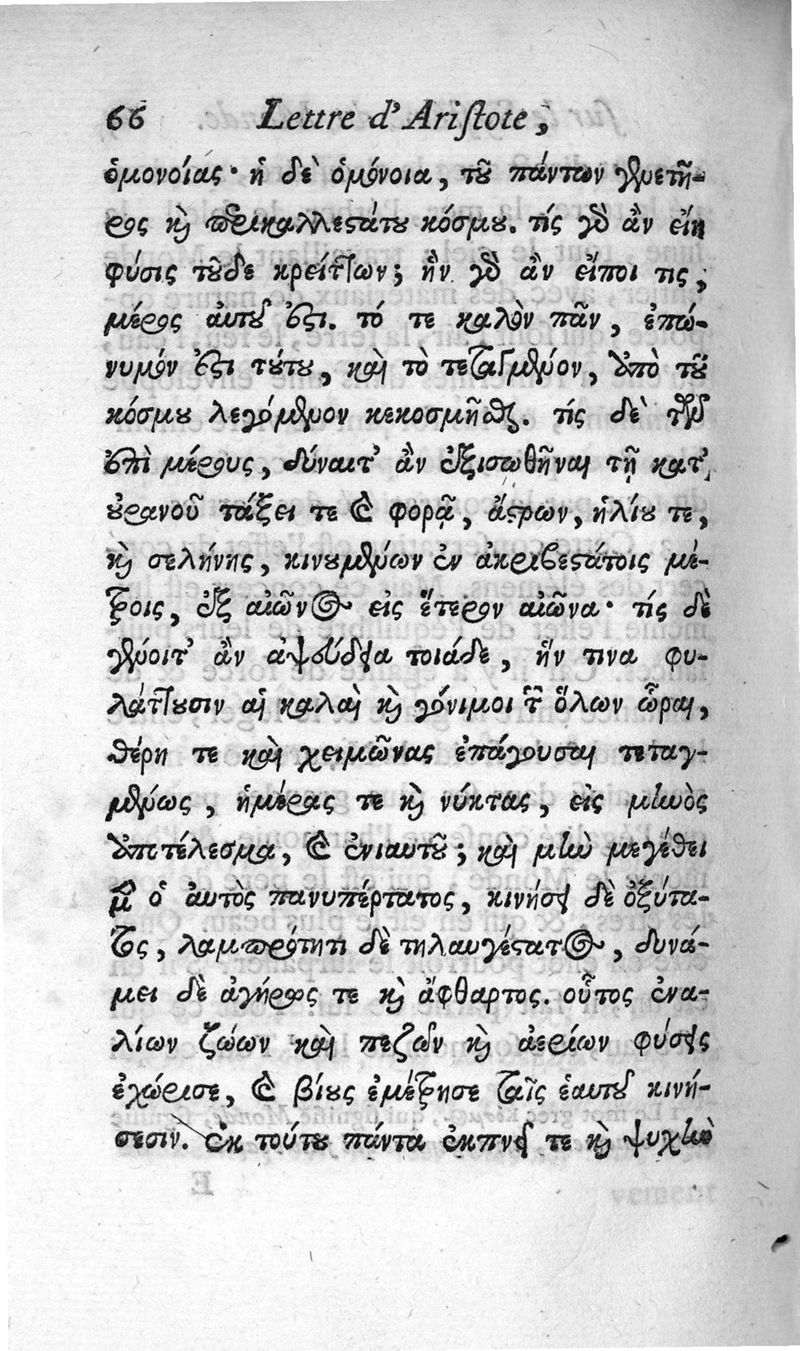 66 Lettre d'Aristote,
ὁμονοίας· ἡ δὲ ὁμόνοια, τοῦ πάντων γενετῆ-
ρος καὶ περικαλλεστάτου κόσμου. τίς γὸ ἂν εἴη
φύσις τοῦδε κρείττων; ἣν γὸ ἂν εἴποι τις,
μέρος αὐτοῦ ἐστι. τό τε καλὸν πᾶν, ἐπώ-
νυμόν ἐστι τούτου, καὶ τὸ τεταγμένον, ὑπὸ τοῦ
κόσμου λεγόμενον κεκοσμῆσθαι. τίς δὲ τῶν
ἐπὶ μέρους, δύναιτ' ἂν ἐξισωθῆναι τῇ κατ'
οὐρανοῦ τάξει τε καὶ φορᾷ, ἄστρων, ἡλίου τε,
καὶ σελήνης, κινουμένων ἐν ἀκριβεστάτοις μέ-
τροις, ἐξ αἰῶνος εἰς ἕτερον αἰῶνα· τίς δὲ
γένοιτ' ἂν ἀψεύδεια τοιάδε, ἥν τινα φυ-
λάττουσιν αἱ καλαὶ καὶ γόνιμοι τῶν ὅλων ὧραι,
θέρη τε καὶ χειμῶνας ἐπάγουσαι τεταγ-
μένως, ἡμέρας τε καὶ νύκτας, εἰς μηνὸς
ἀποτέλεσμα, καὶ ἐνιαυτοῦ; καὶ μὴν μεγέθει
μὲν ὁ αὐτὸς πανυπέρτατος, κινήσει δὲ ὀξύτα-
τος, λαμπρότητι δὲ τηλαυγέστατος, δυνά-
μει δὲ ἀγήρως τε καὶ ἄφθαρτος. οὗτος ἐνα-
λίων ζώων καὶ πεζῶν καὶ ἀερίων φύσεις
ἐχώρισε, καὶ βίους ἐμέτρησε ταῖς ἑαυτοῦ κινή-
σεσιν. ἐκ τούτου πάντα ἐκπνεῖ τε καὶ ψυχὴν